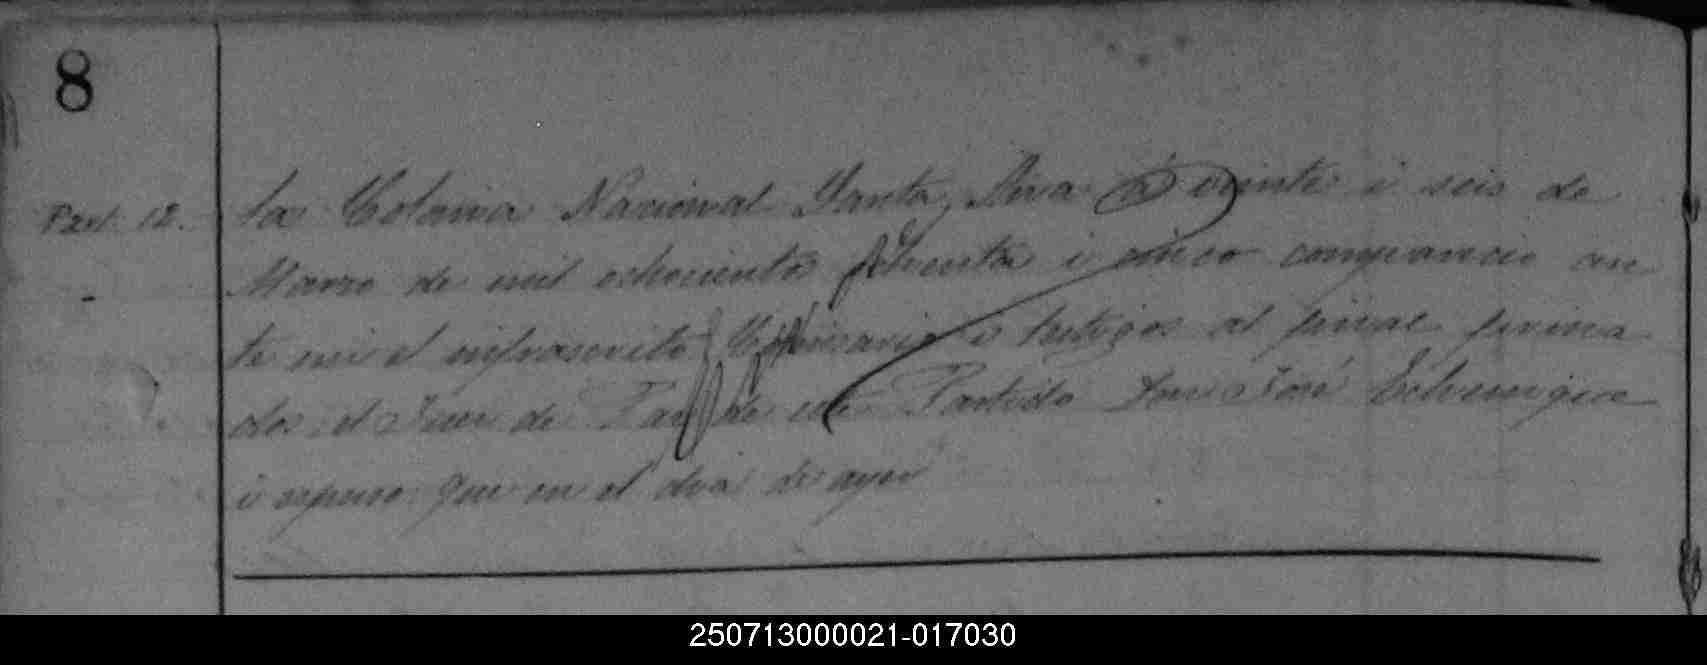 8
Part. 12.
la Colonia Nacional Santa Ana á veinte i seis de
Marzo de mil ochocientos ochenta i cinco comparecio an
te mi el infrascrito Comisario i testigos al final firma
dos, el Juez de Paz de este Partido Don José
i espuso que en el dia de ayer
250713000021-017030